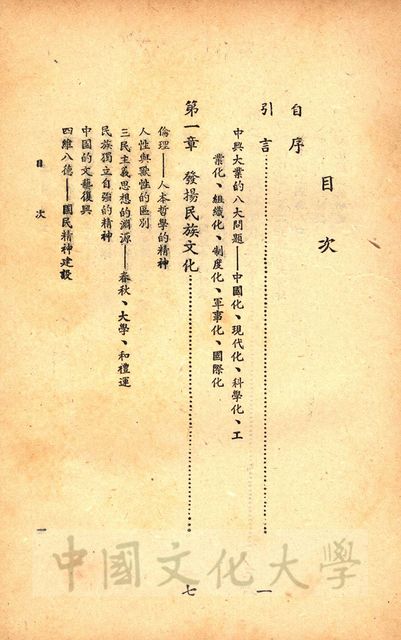 目次
自序
引言……………………………………一
中興大業的八大問題——中國化、現代化、科學化、工
業化、組織化、制度化、軍事化、國際化
第一章　發揚民族文化……………………七
倫理——人本哲學的精神
人性與獸性的區別
三民主義思想的淵源——春秋、大學、和禮運
民族獨立自強的精神
中国的文藝復興
四維八德——國民精神建設
目次　一
中國文化大學